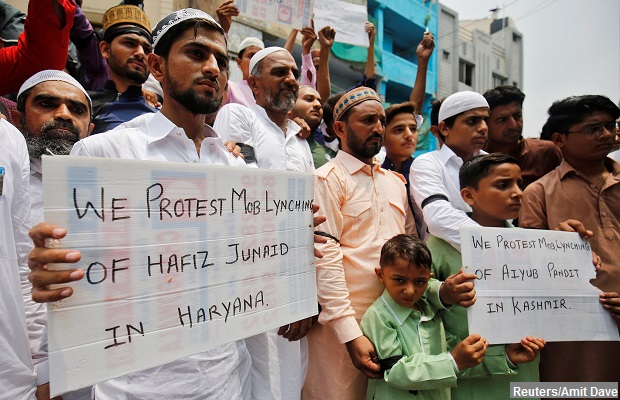 WE PROTEST MOB LYNCHING
OF HAFIZ JUNAID
IN HARYANA.
WE PROTEST MOB LYNCHING
OF AIYUB PANDIT
IN KASHMIR.
Reuters/Amit Dave